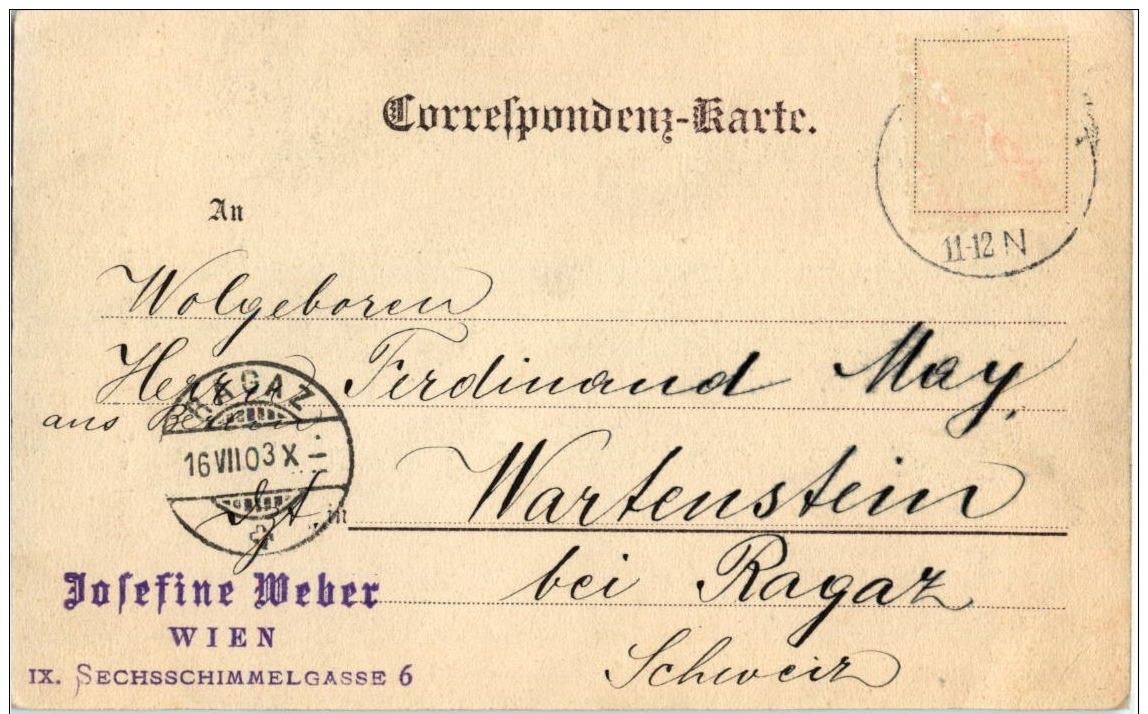 Correspondenz-Karte.
11-12 N
An
Wolgeboren
Herrn Ferdinand May,
aus Berlin
RAGAZ
16 VII 03 X
Zzt in Wartenstein
bei Ragaz
Schweiz
Josefine Weber
WIEN
IX. SECHSSCHIMMELGASSE 6